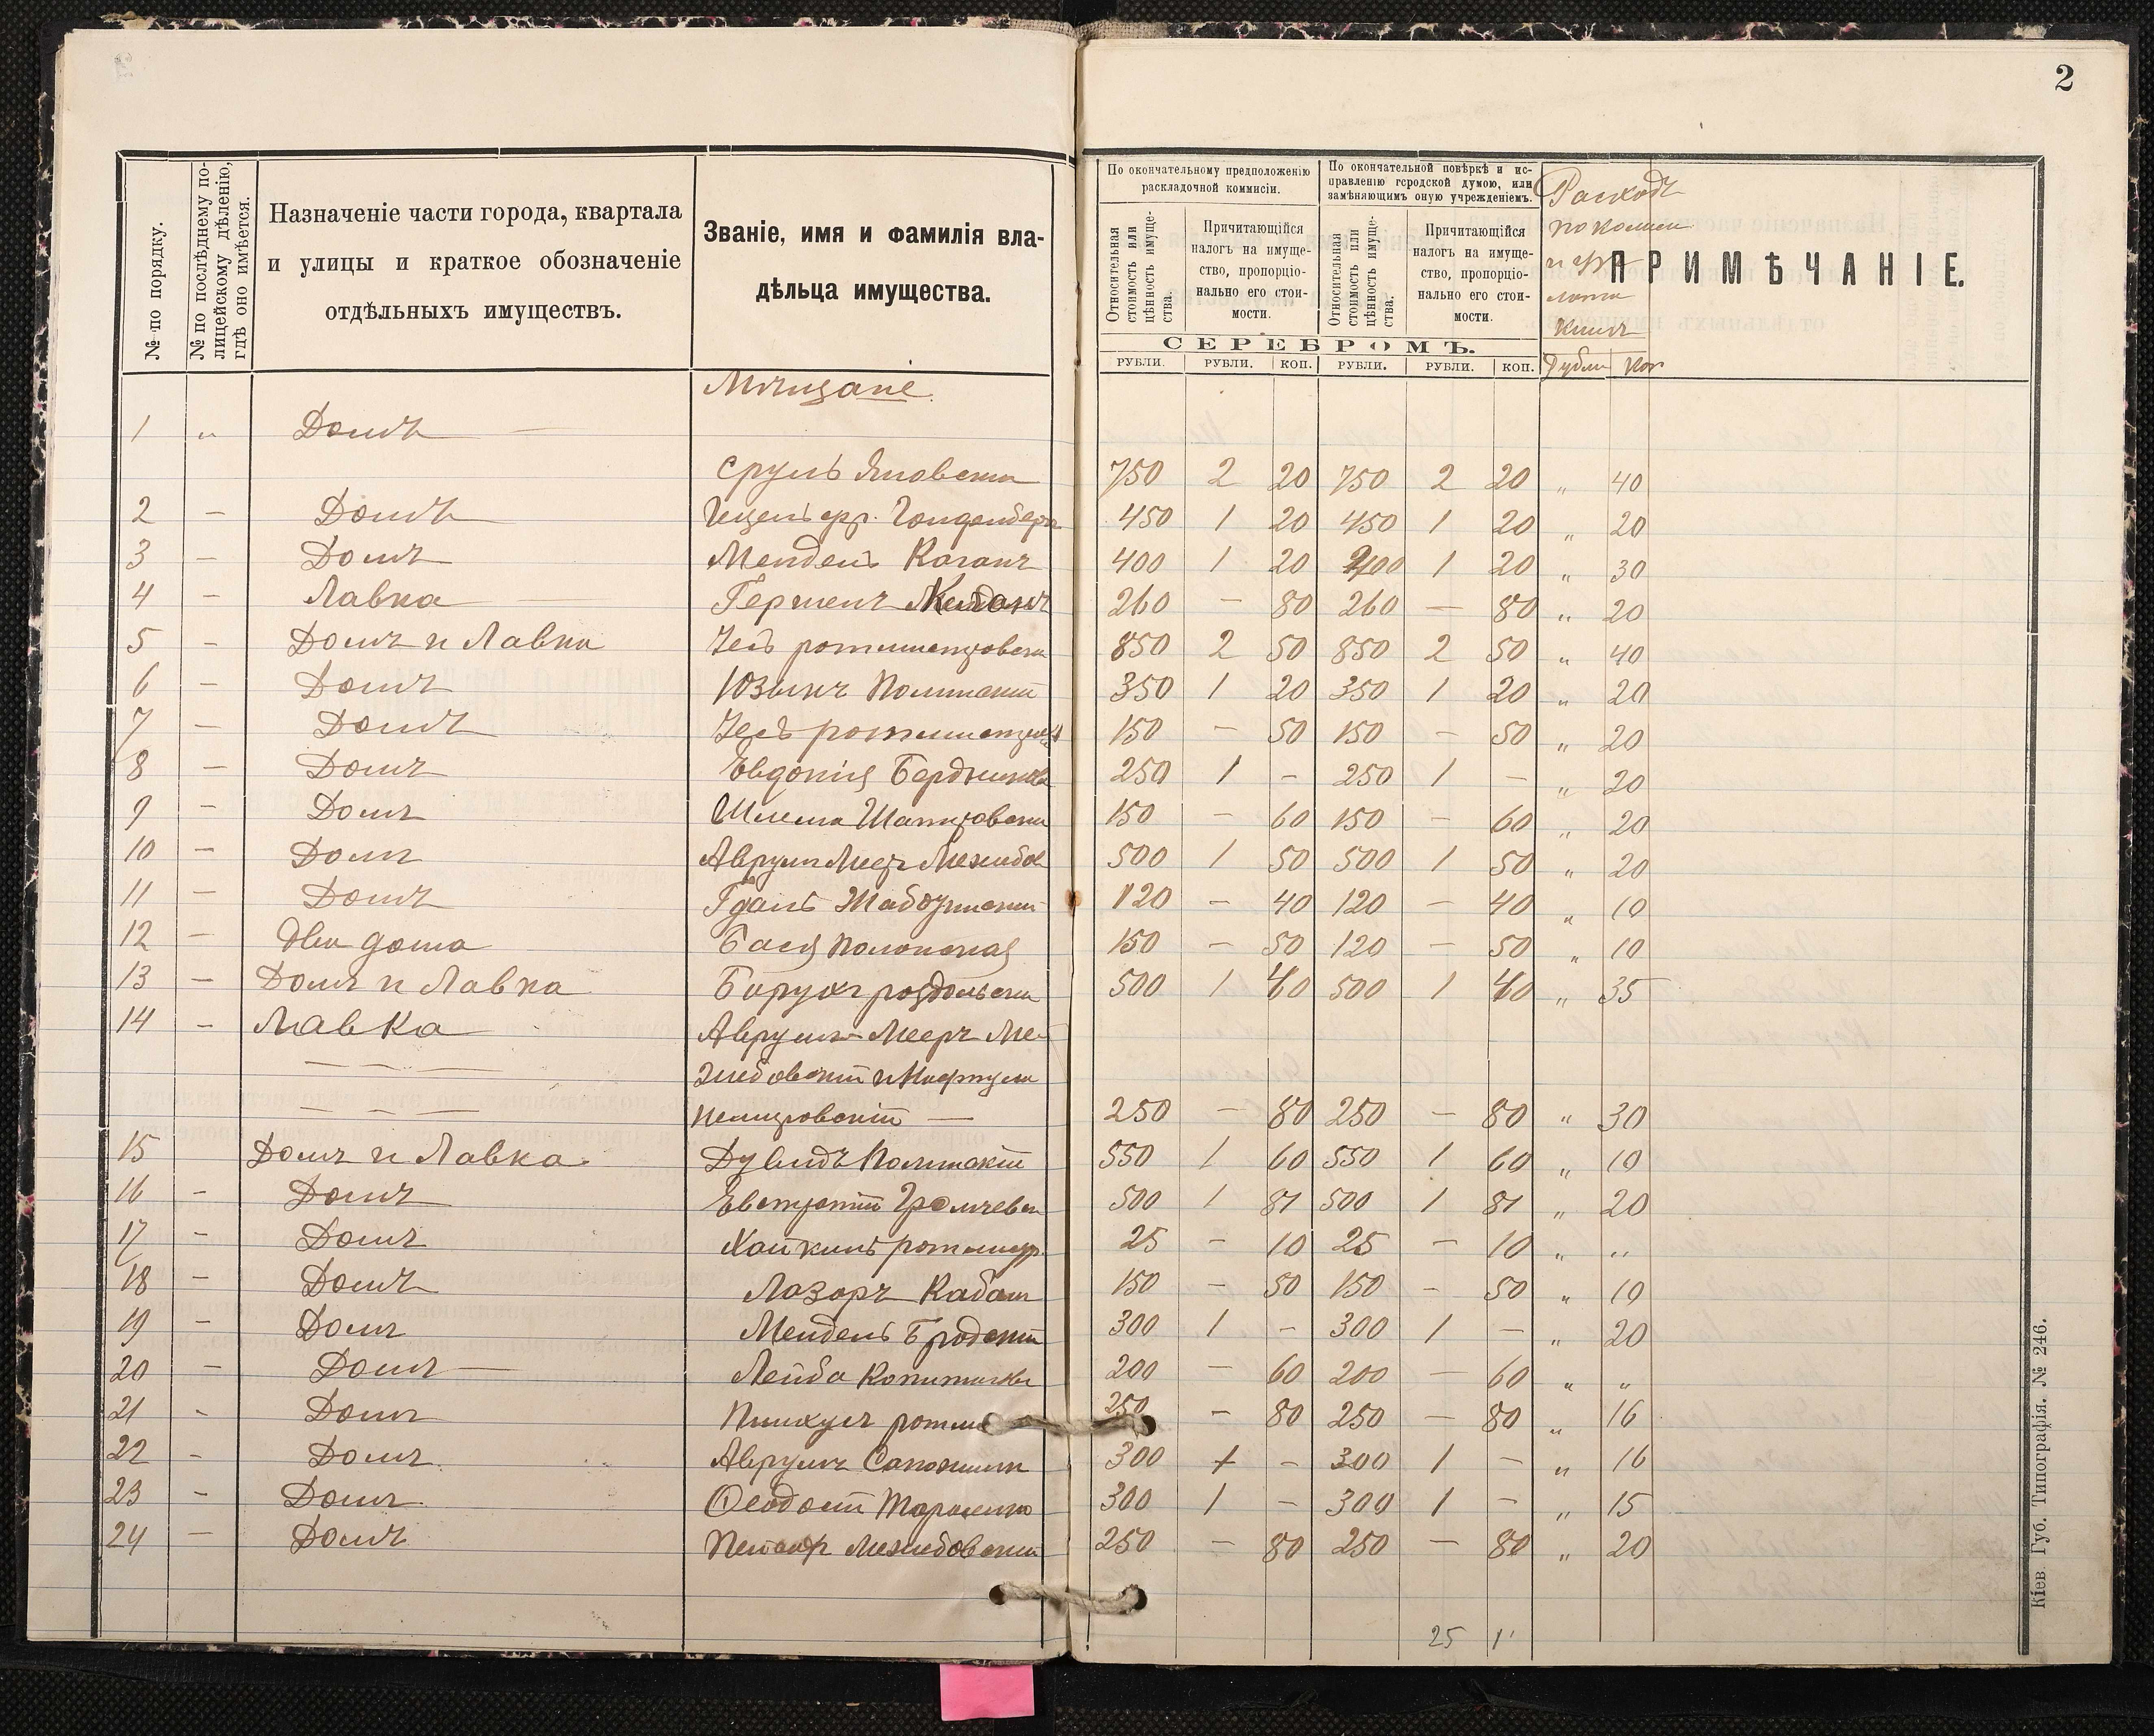 2
№ по порядку.
№ по послѣднему по-
лицейскому дѣленію,
гдѣ оно имѣется.
Назначеніе части города, квартала
и улицы и краткое обозначеніе
отдѣльныхъ имуществъ.
Званіе, имя и фамилія вла-
дѣльца имущества.
По окончательному предположенію
раскладочной комисіи.
По окончательной повѣркѣ и ис-
правленію городской думою, или
замѣняющимъ оную учрежденіемъ.
Относительная
стоимость или
цѣнность имуще-
ства.
Причитающійся
налогъ на имуще-
ство, пропорціо-
нально его стои-
мости.
Относительная
стоимость или
цѣнность имуще-
ства.
Причитающійся
налогъ на имуще-
ство, пропорціо-
нально его стои-
мости.
Расходъ
ПРИМѢЧАНІЕ.
СЕРЕБРОМЪ.
РУБЛИ. РУБЛИ. КОП. РУБЛИ. РУБЛИ. КОП. Рубли Коп
Мѣщане.
1 " Домъ —
Сруль Яновски 750 2 20 750 2 20 " 40
2 — Домъ 450 1 20 450 1 20 " 20
3 — Домъ Мендель Каганъ 400 1 20 400 1 20 " 30
4 — Лавка 260 — 80 260 — 80 " 20
5 — Домъ и Лавка 850 2 50 850 2 50 " 40
6 — Домъ 350 1 20 350 1 20 " 20
7 — Домъ 150 — 50 150 — 50 " 20
8 — Домъ Евдокія 250 1 — 250 1 — " 20
9 — Домъ Шлема 150 — 60 150 — 60 " 20
10 — Домъ Аврумъ Меръ Межибов 500 1 50 500 1 50 " 20
11 — Домъ 120 — 40 120 — 40 " 10
12 — Два дома Бася Полонская 150 — 50 120 — 50 " 10
13 — Домъ и Лавка Борухъ 500 1 40 500 1 40 " 35
14 — Лавка Аврумъ Мееръ Ме-
— — — жибовскій и Нафтула
— — — Немировскій — 250 — 80 250 — 80 " 30
15 Домъ и Лавка Дувидъ 550 1 60 550 1 60 " 10
16 — Домъ 500 1 81 500 1 81 " 20
17 — Домъ 25 — 10 25 — 10 " "
18 — Домъ Лазоръ Кабан 150 — 50 150 — 50 " 10
19 — Домъ Мендель Бродскій 300 1 — 300 1 — " 20
20 — Домъ — Лейба 200 — 60 200 — 60 " "
21 - Домъ Пинхусъ 250 — 80 250 — 80 " 16
22 - Домъ Аврумъ 300 1 — 300 1 — " 16
23 - Домъ Ѳеодосій 300 1 — 300 1 — " 15
24 — Домъ Межибовскій 250 — 80 250 — 80 " 20
25 1
Кіев. Губ. Типографія. № 246.